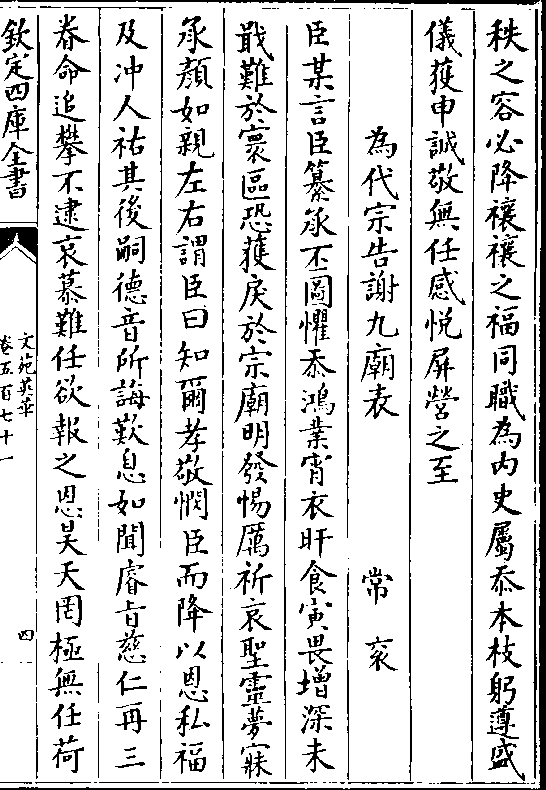 秩之容必降禳禳之福同職為内史屬忝本枝躬遵盛
儀獲申誠敬無任感悦屏營之至
為代宗告謝九廟表　常衮
臣某言臣纂承丕圖懼忝鴻業宵衣旰食寅畏增深未
戢難於寰區恐獲戾於宗廟明發惕厲祈哀聖靈夢寐
承顔如親左右謂臣曰知爾孝敬憫臣而降以恩私福
及冲人祐其後嗣德音所誨歎息如聞睿旨慈仁再三
眷命追攀不逮哀慕難任欲報之恩昊天罔極無任荷
欽定四庫全書
文苑英華
卷五百七十一
四